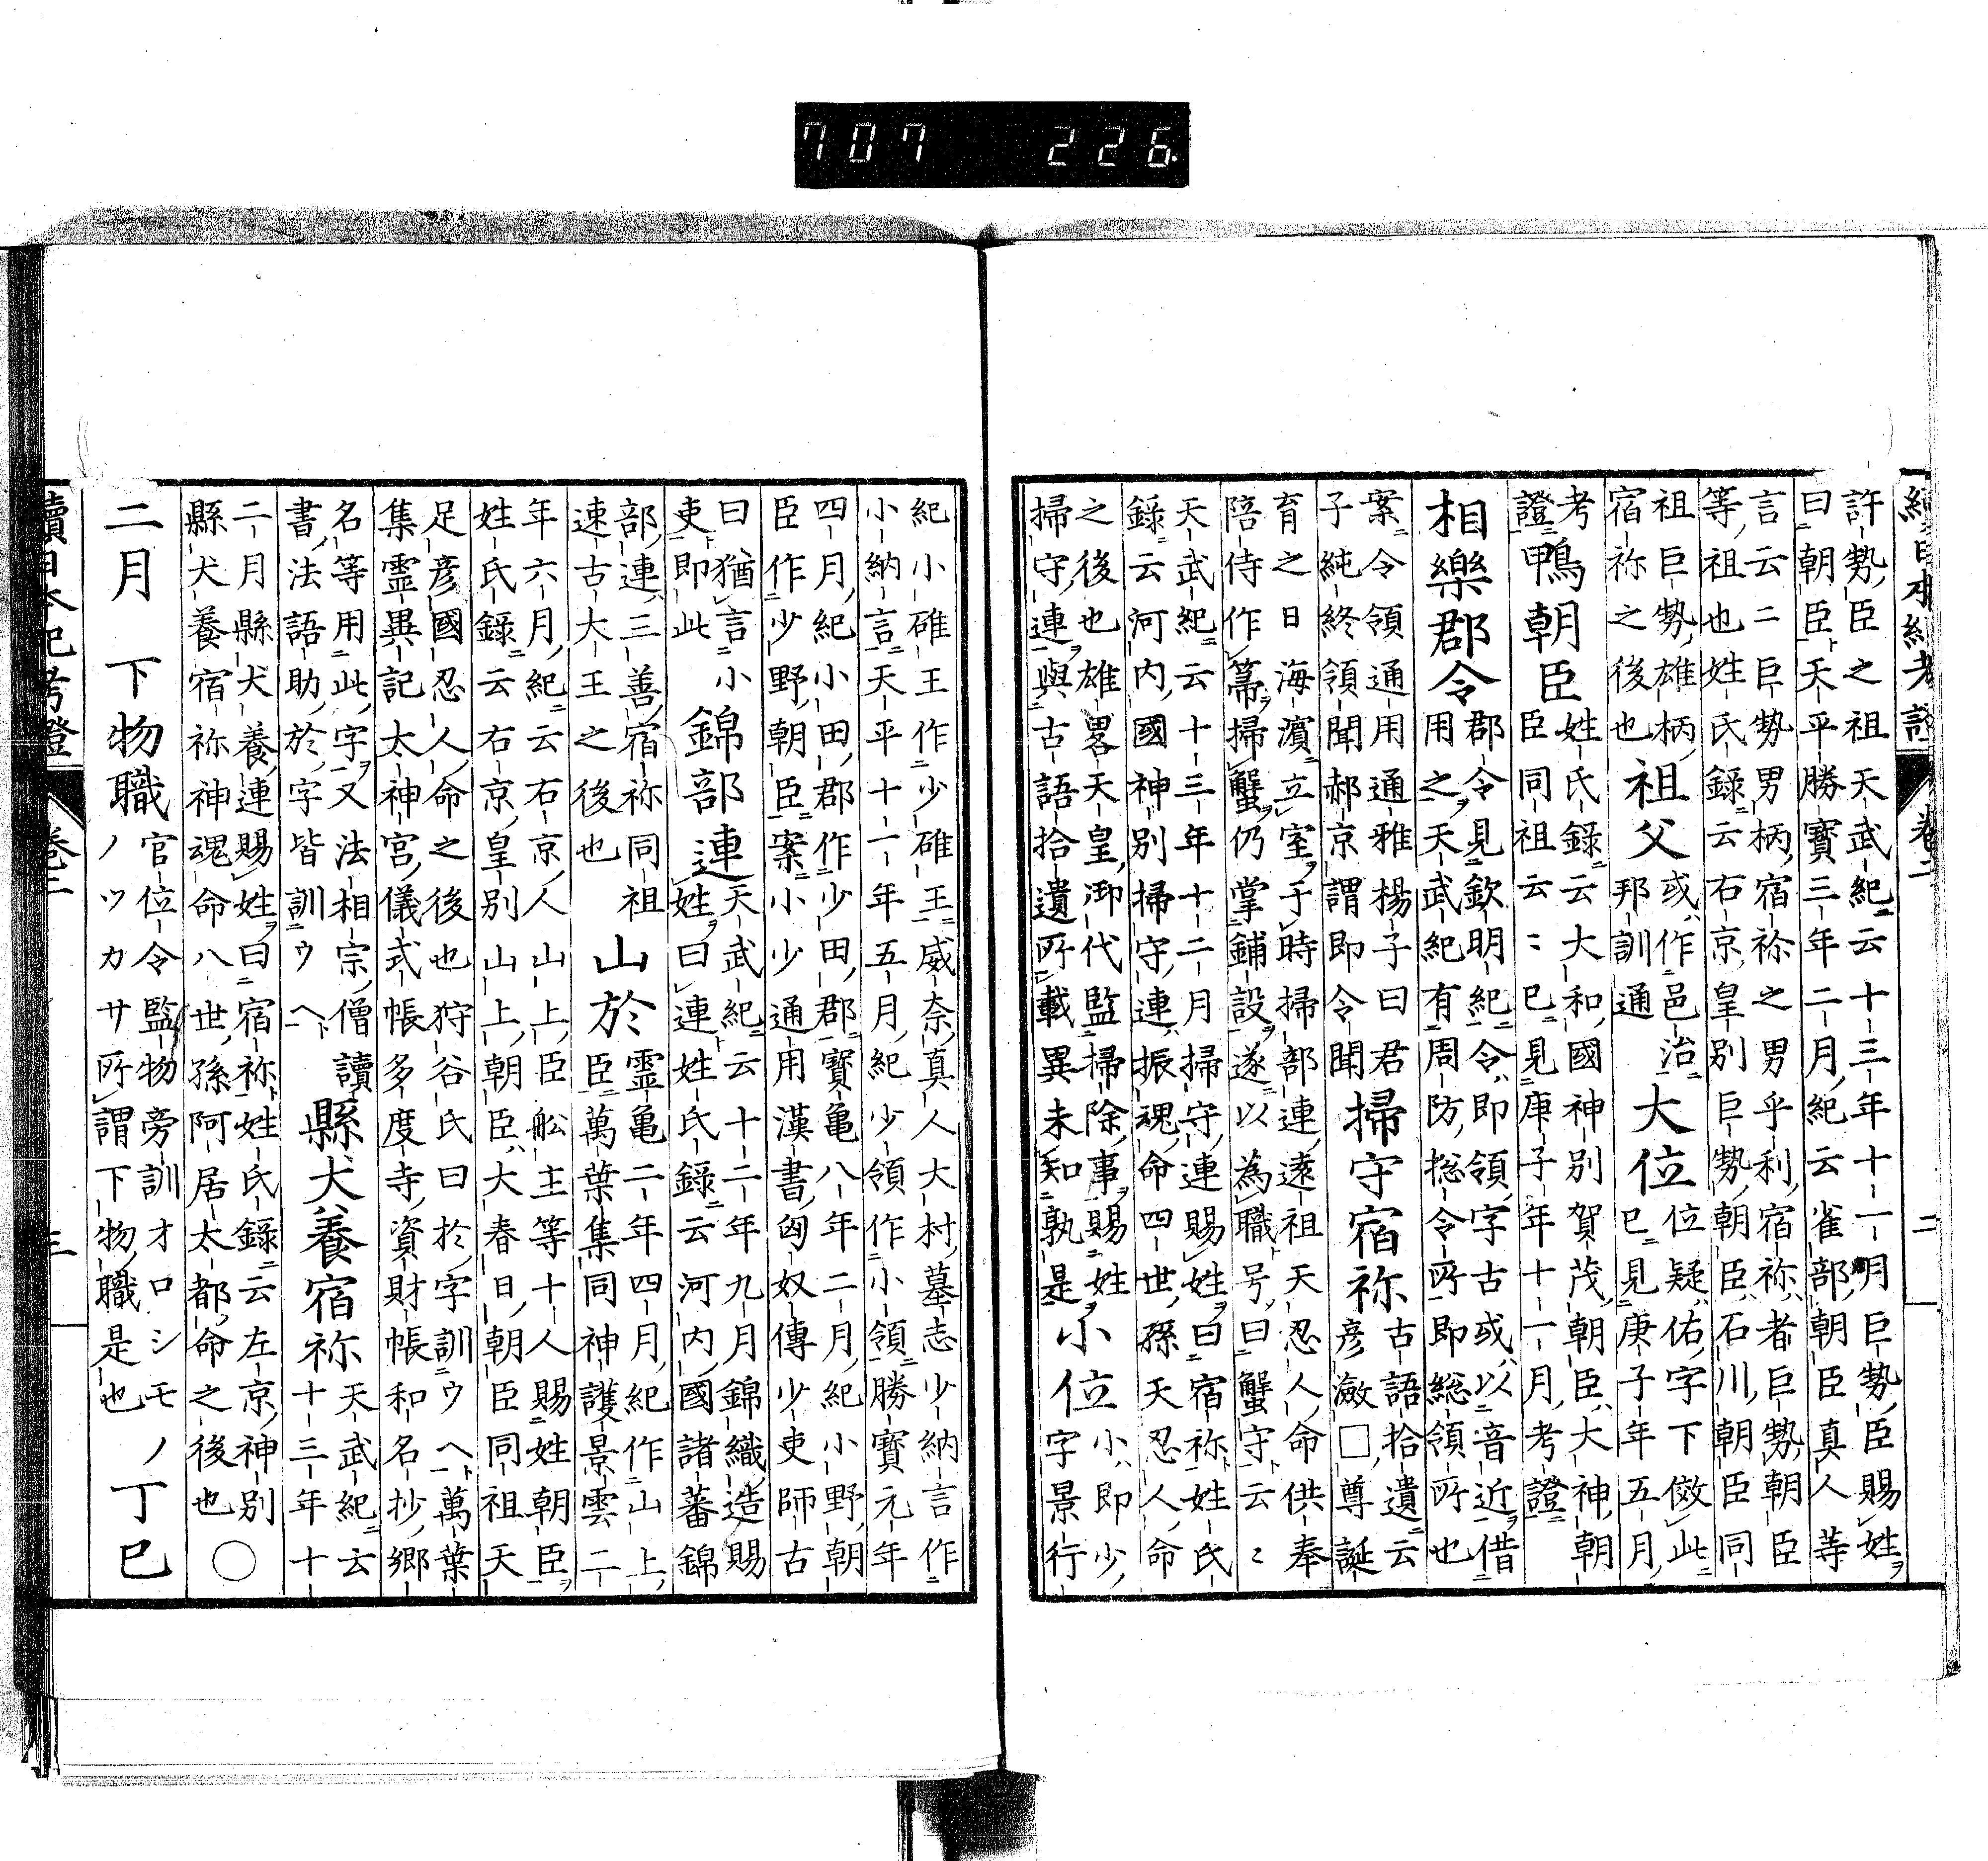 續日本紀考證 卷二 二
許勢臣之祖天武紀云十三年十一月巨勢臣賜姓ヲ
曰朝臣天平勝寶三年二月紀云雀部朝臣真人等
言云二巨勢男柄宿祢之男乎利宿祢者巨勢朝臣
等祖也姓氏録云右京皇別巨勢朝臣石川朝臣同
祖巨勢雄柄
宿祢之後也
祖父
或作邑治
邦訓通
大位
位疑佑字下傚此
已見庚子年五月
考
證
鴨朝臣
姓氏録云大和國神別賀茂朝臣大神朝
臣同祖云〻已見庫子年十一月考證
相樂郡令
郡令見欽明紀令即領字古或以音近借
用之天武紀有周防揔令所即総領所也
案令領通用通雅楊子曰君
子純終領聞郝京謂即令聞
掃守宿祢
古語拾遺云
彦瀲□尊誕
育之日海濵立室于時掃部連遠祖天忍人命供奉
陪侍作箒掃蟹仍掌鋪設遂以為職号曰蟹守云〻
天武紀云十三年十二月掃守連賜姓曰宿祢姓氏
錄云河内國神別掃守連振魂命四世孫天忍人命
之後也雄畧天皇御代監掃除事賜姓
掃守連與古語拾遺所載異未知孰是
小位
小即少
字景行
紀小碓王作少碓王威奈真人大村墓志少納言作
小納言天平十一年五月紀少領作小領勝寶元年
四月紀小田郡作少田郡寶亀八年二月紀小野朝
臣作少野朝臣案小少通用漢書匈奴傳少吏師古
曰猶言小
吏即此
錦部連
天武紀云十二年九月錦織造賜
姓曰連姓氏録云河内國諸蕃錦
部連三善宿祢同祖
速古大王之後也
山於
靈亀二年四月紀作山上
臣萬葉集同神護景雲二
年六月紀云右京人山上臣舩主等十人賜姓朝臣
姓氏録云右京皇別山上朝臣大春日朝臣同祖天
足彦國忍人命之後也狩谷氏曰於字訓ウヘ萬葉
集靈異記太神宮儀式帳多度寺資財帳和名抄郷
名等用此字又法相宗僧讀
書法語助於字皆訓ウヘ
縣犬養宿祢
天武紀云
十三年十
二月縣犬養連賜姓曰宿祢姓氏録云左京神別
縣犬養宿祢神魂命八世孫阿居太都命之後也
○
二月
下物職
官位令監物旁訓オロシモノ
ノツカサ所謂下物職是也
丁巳
續日本紀考證 卷二 三